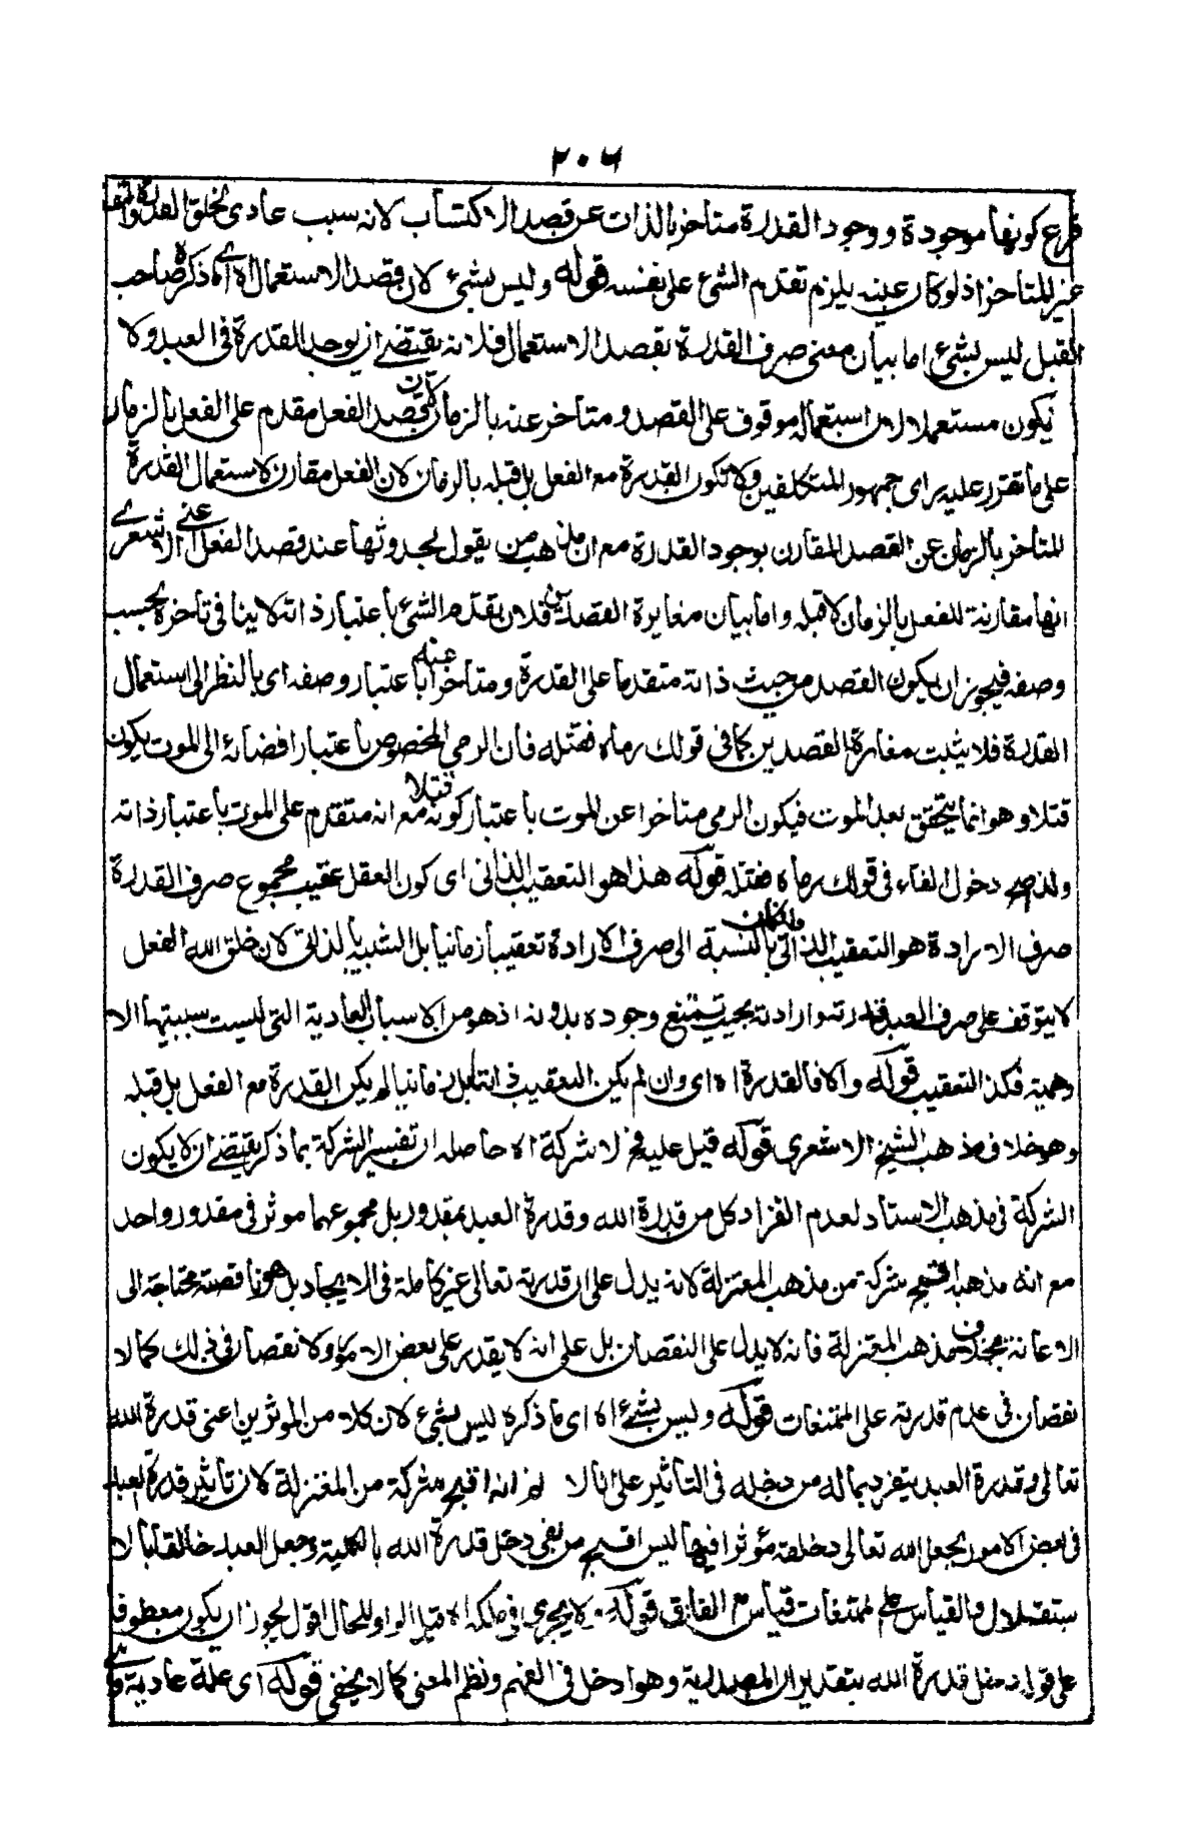 ٢٠٦
فرع كونها موجودة ووجود القدرة متاخر بالذات عن قصد الاكتساب لانه سبب عادى لخلق القدرة
غير المتاخر اذ لو كان عينه يلزم تقدم الشئ على نفسه قوله وليس بشئ لان قصد الاستعمال اه اى ما ذكره صاحب
القيل ليس بشئ اما بيان معنى صرف القدرة بقصد الاستعمال فلانه يقتضى ان يوجد القدرة فى العبد ولا
يكون مستعملا لان استعماله موقوف على القصد ومتاخر عنه بالزمان لان قصد الفعل مقدم على الفعل بالزمان
على ما تقرر عليه راى جمهور المتكلفين ولا تكون القدرة مع الفعل بل قبله بالزمان لان الفعل مقارن لاستعمال القدرة
المتاخر بالزمان عن القصد المقارن بوجود القدرة مع ان مذهب من يقول بحدوثها عند قصد الفعل اعنى الاشعرى
انها مقارنة للفعل بالزمان لا قبله واما بيان مغايرة القصدين فلان تقدم الشئ باعتبار ذاته لا ينافى تاخره بحسب
وصفه فيجوز ان يكون القصد من حيث ذاته متقدما على القدرة ومتاخرا عنه باعتبار وصفه اى بالنظر الى استعمال
القدرة فلا يثبت مغايرة القصدين كما فى قولك رماه فقتله فان الرمى المخصوص باعتبار افضائه الى الموت يكون
قتلا وهو انما يتحقق بعد الموت فيكون الرمى متاخرا عن الموت باعتبار كونه قتلا مع انه متقدم على الموت باعتبار ذاته
ولذا صح دخول الفاء فى قولك رماه فقتله قوله هذا هو التعقيب الذاتى اى كون العقل عقيب مجموع صرف القدرة
صرف الارادة هو التعقيب الذاتى بالنسبة الى صرف الارادة تعقيبا زمانيا بل الشبيه بالذاتى لان خلق الله الفعل
لا يتوقف على صرف العبد قدرته وارادته بحيث يمتنع وجوده بدونه اذ هو من الاسباب العادية التى ليست سببيتها الا
وهمية فكذا التعقيب قوله والا فالقدرة اه اى وان لم يكن التعقيب ذاتيا بل زمانيا لم يكن القدرة مع الفعل بل قبله
وهو خلاف مذهب الشيخ الاشعرى قوله قيل عليه فح لا شركة اه حاصله ان تفسير الشركة بما ذكر يقتضى ان لا يكون
الشركة فى مذهب الاستاد لعدم انفراد كل من قدرة الله وقدرة العبد بمقدور بل مجموعهما موثر فى مقدور واحد
مع انه مذهبه اقبح شركة من مذهب المعتزلة لانه يدل على ان قدرته تعالى غير كاملة فى الايجاد بل هو ناقصة محتاجة الى
الاعانة بخلاف مذهب المعتزلة فانه لا يدل على النقصان بل على انه لا يقدر على بعض الامور ولا نقصان فى ذلك كما لا
نقصان فى عدم قدرته على الممتنعات قوله وليس بشئ اه اى ما ذكره ليس بشئ لان كلا من الموثرين اعنى قدرة الله
تعالى وقدرة العبد يتفرد بما له من دخله فى التاثير على انا لا نم انه اقبح شركة من المعتزلة لان تاثير قدرة العبد
فى بعض الامور بجعل الله تعالى دخلته مؤثرا فيها ليس اقبح من نفى دخل قدرة الله بالكلية وجعل العبد خالقا بالا
ستقلال والقياس على ممتنعات قياس مع الفارق قوله ولا يجرى فى ملكه اه قيل الواو للحال اقول يجوز ان يكون معطوفا
على قوله دخل قدرة الله بتقدير ان المصدرية وهو ادخل فى الفهم ونظم المعنى كما لا يخفى قوله اى علة عادية